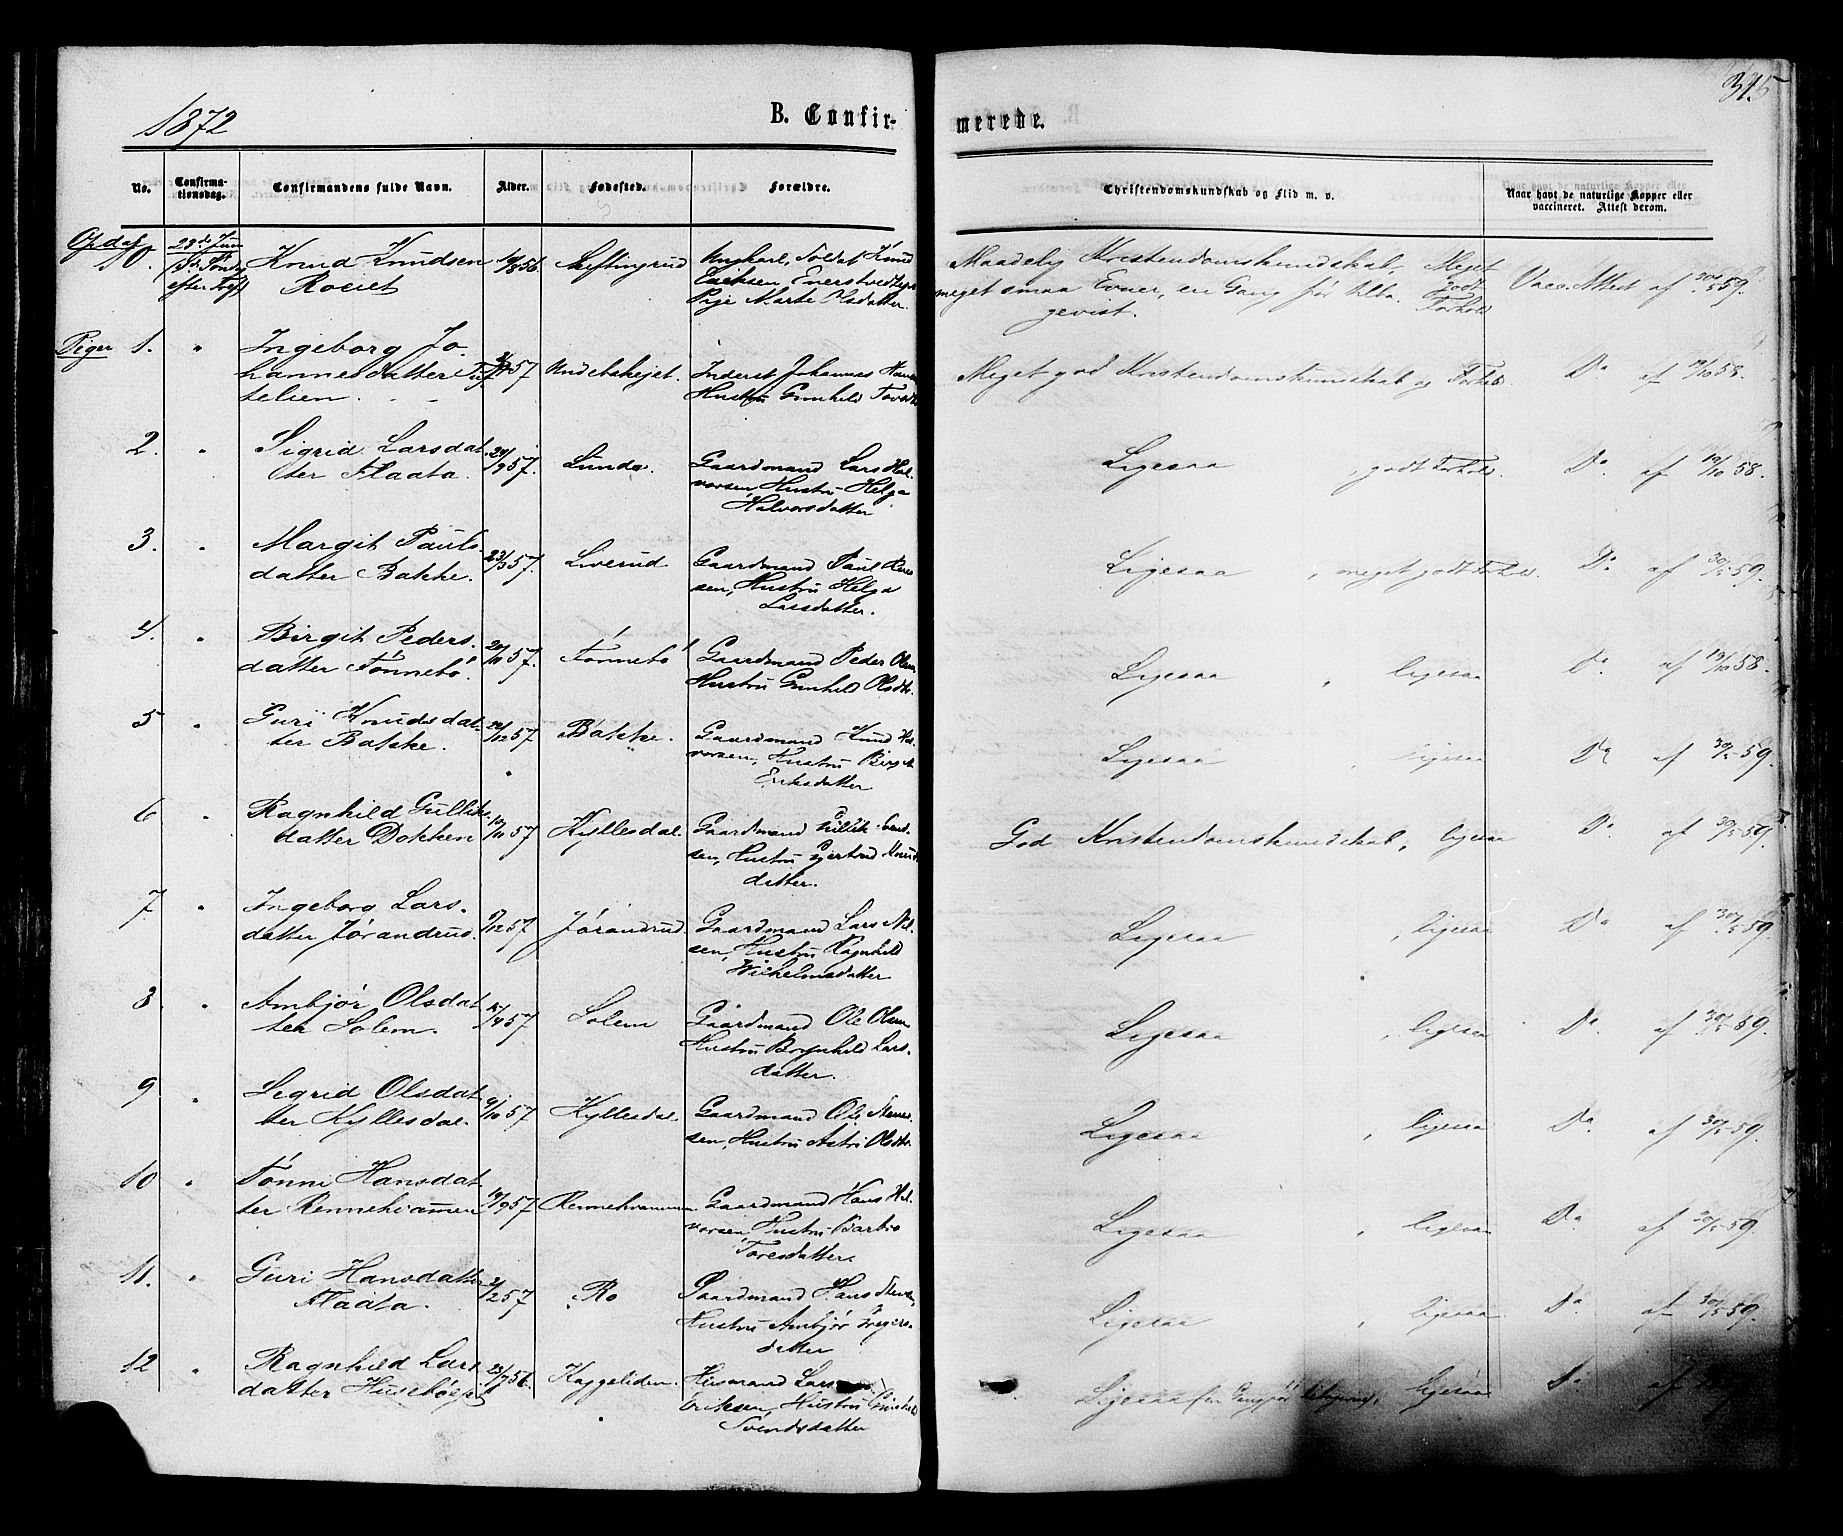 1872
B. Confir-
merede.
315
No.
Confirma-
tionsdag.
Confirmandens fulde Navn.
Alder.
Fødested.
Forældre.
Christendomskundskab og Flid m. v.
Naar havt de naturlige Kopper eller
vaccineret. Attest derom.
Opdal
10. 23de Juni Knud Knudsen Ungkarl, Soldat Knud
efter Roeiet Pige Marte
Maadelig Kristendomskundskab, Meget
meget smaa Evner, en Gang før tilba- godt
gevist. Forhold
Vacc. Attest af 30/5 59.
Piger 1. " Ingeborg Jo-
hannesdatter Tuf-
telien.
Inderst Johannes
Hustru Gunhild
Meget god Kristendomskundskab og Forhold. Do af 19/10 58.
2. " Sigrid Larsdat-
ter Flaata. 29/9 57. Lunde. Gaardmand Lars Hal-
vorsen, Hustru Helga
Halvorsdatter
Ligesaa , godt Forhold. Do af 19/10 58.
3. " Margit Pauls-
datter Bakke. 23/3 57. Liverud. Gaardmand Paul
sen, Hustru Helga
Larsdatter.
Ligesaa , meget godt Forhold. Do af 30/5 59.
4. " Birgit Peders-
datter Tønnebö. 20/11 57. Tønnebö Gaardmand Peder Olsen
Hustru Gunhild Olsdtr.
Ligesaa , ligesaa Do af 19/10 58.
5 " Guri Knudsdat-
ter Bakke. 57. Bakke. Gaardmand Knud Hal-
vorsen, Hustru Birgit
Eriksdatter
Ligesaa , ligesaa Do af 30/5 59.
6 " Ragnhild Gulliks-
datter Dokken 10/11 57 Kyllesdal. Gaardmand Gullik
sen, Hustru Gjertrud Knuds-
datter.
God Kristendomskundskab, ligesaa Do af 30/5 59.
7 " Ingeborg Lars-
datter Jørandrud. 57 Jørandrud. Gaardmand Lars Nil-
sen, Hustru Ragnhild
Wilhelmsdatter
Ligesaa , ligesaa Do af 30/5 59.
8 " Ambjør Olsdat-
ter Solem. 15/4 57 Solem Gaardmand Ole Olsen
Hustru Bognhild Lars-
datter.
Ligesaa , ligesaa Do af 30/5 59.
9 " Segrid Olsdat-
ter Kyllesdal. 9/10 57 Kyllesdal. Gaardmand Ole Steen-
sen, Hustru Astri Olsdtr
Ligesaa , ligesaa Do af 30/5 59.
10 " Tønni Hansdat-
ter Rennehvammen 19/9 57 Rennehvammen Gaardmand Hans Hal-
vorsen, Hustru Barbro
Toresdatter.
Ligesaa , ligesaa Do af 30/5 59
11. " Guri Hansdatter
Flaata. 2/2 57 Ro Gaardmand Hans
Hustru Ambjør
datter
Ligesaa , ligesaa Do af 30/5 59.
12 " Ragnhild Lars-
datter Husebøeg 23/7 56. Kaggeliden. Husmand Lars
Eriksen, Hustru Gunhild
Svendsdatter
Ligesaa (en Gang før tilbagevist), ligesaa Do af